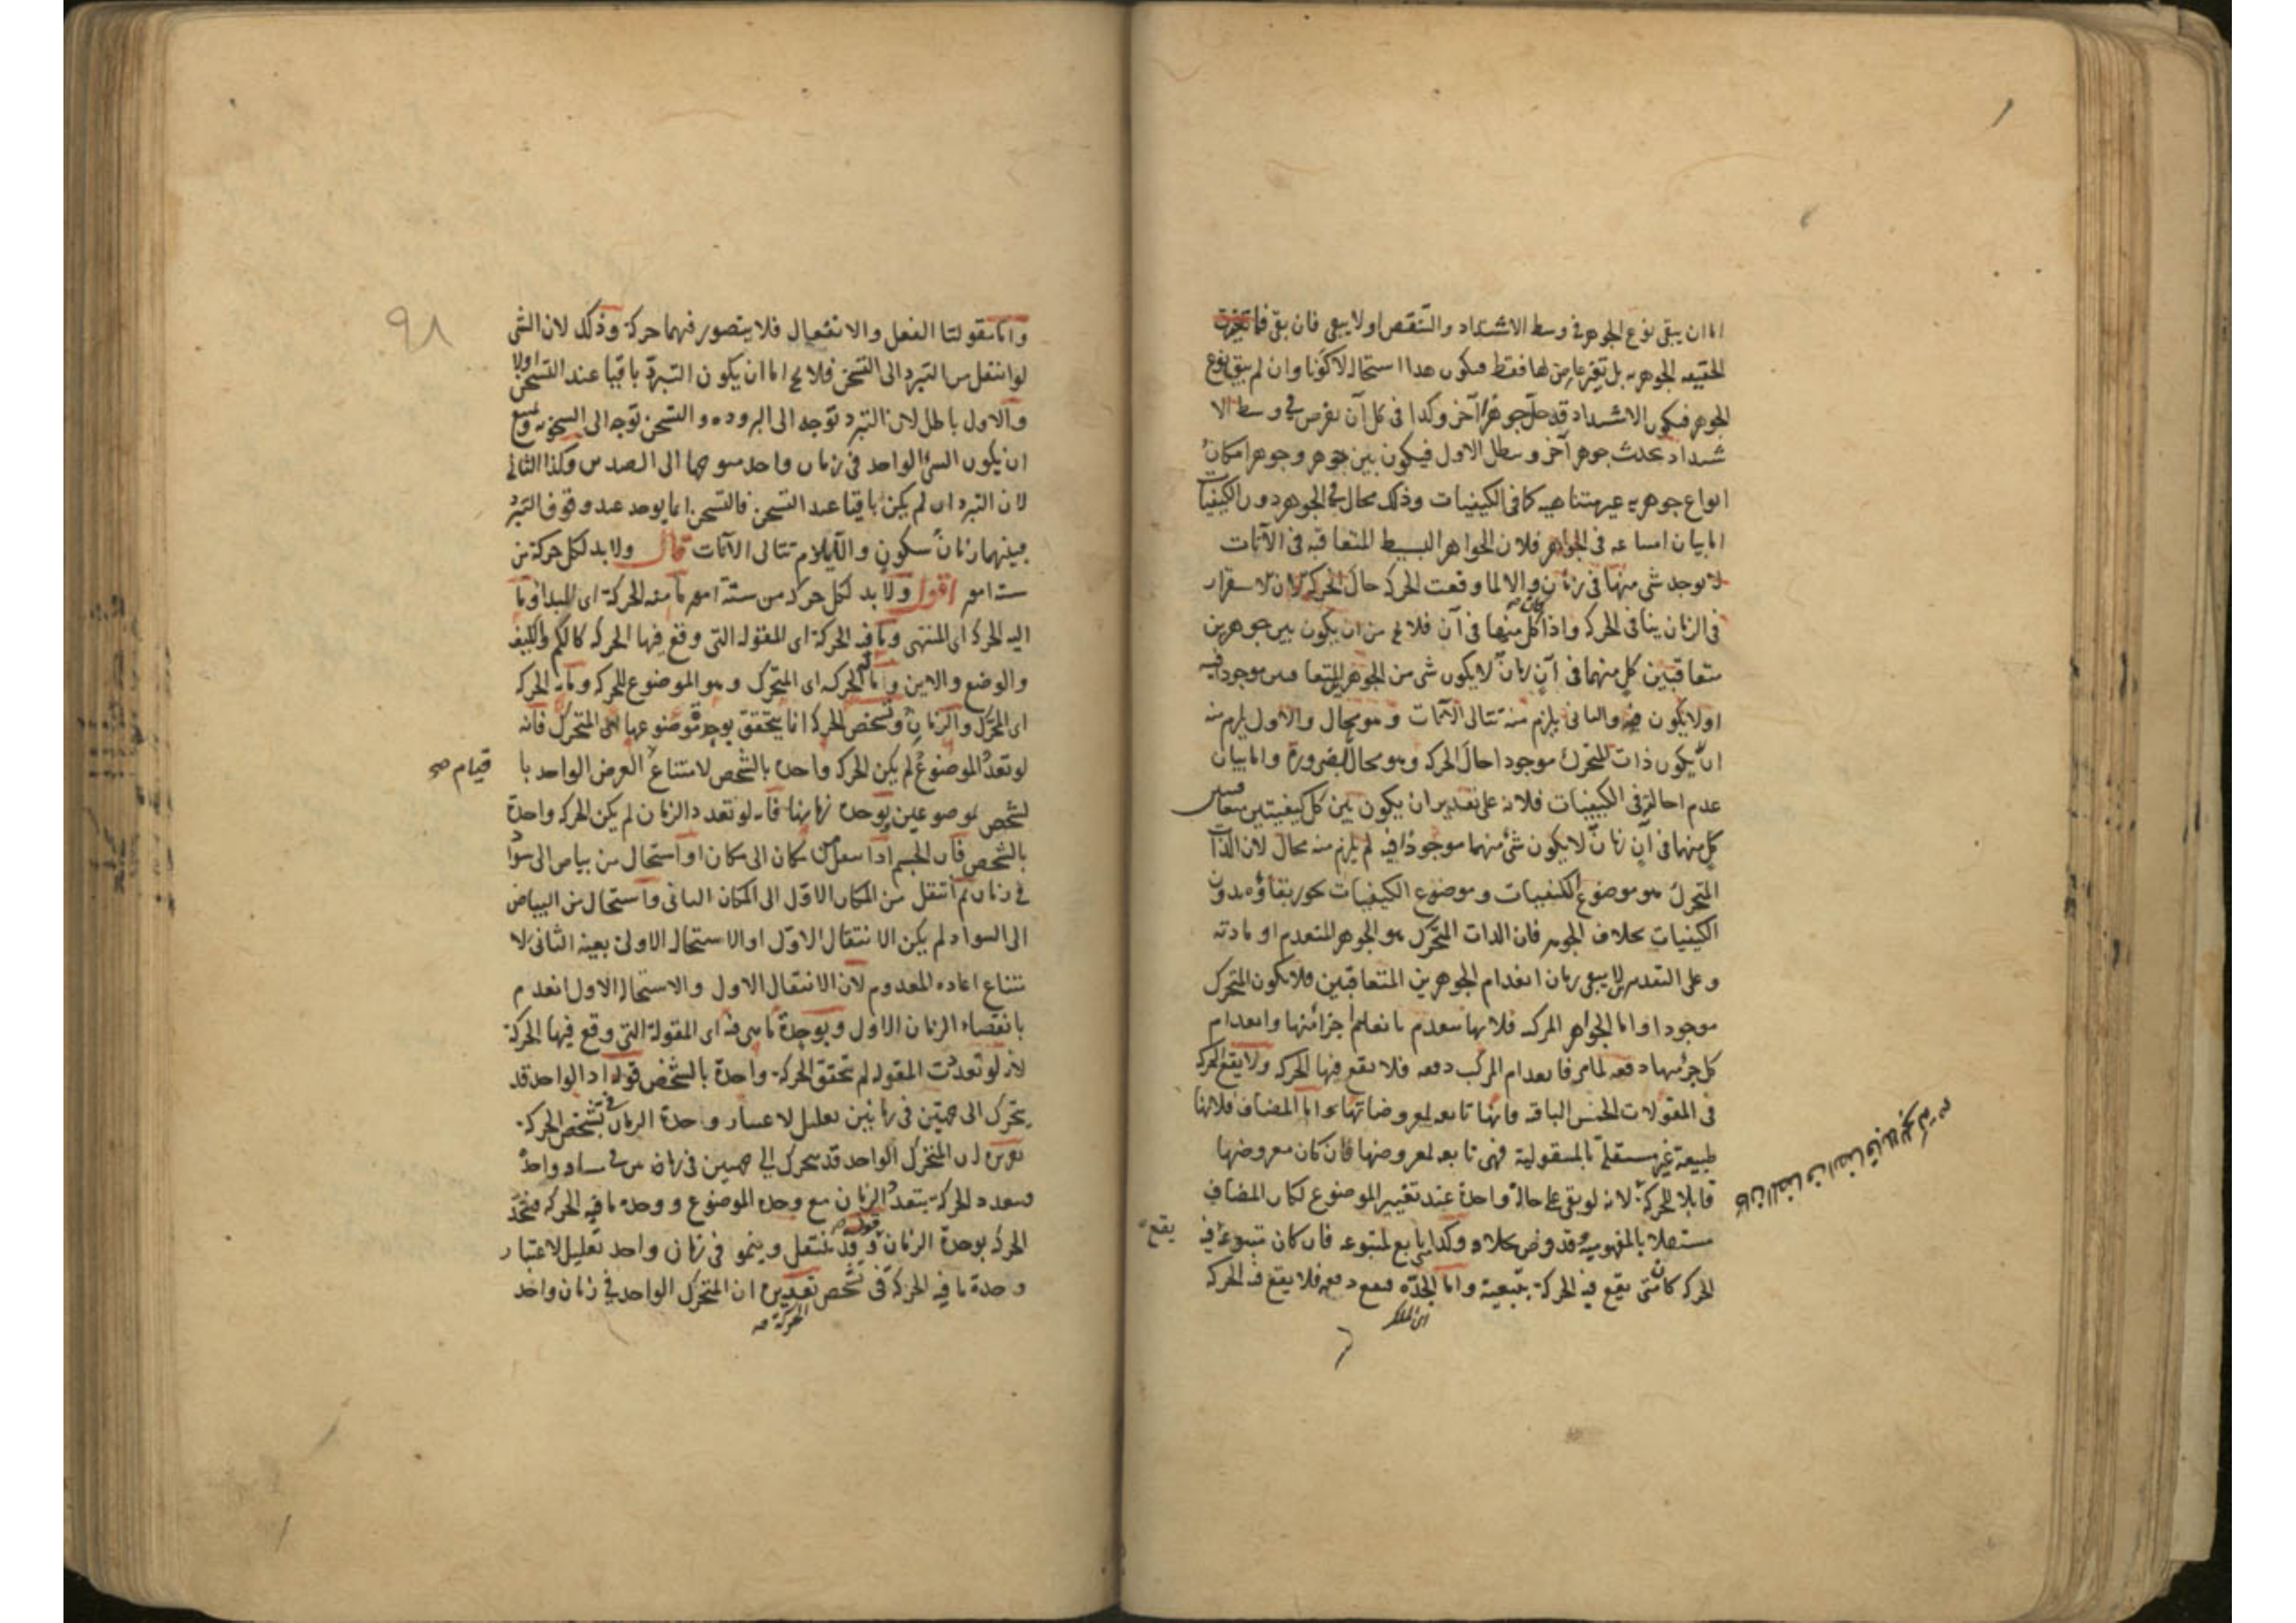 اما ان يبقى نوع الجوهر في وسط الاشتداد والتنقص او لا يبقى فان بقى فما تغيرت
الحقيقه الجوهريه بل تغير عارض لها فقط فيكون هدا استحالة لا كونا وان لم يبق نوع
الجوهر فيكون الاشتداد قد جلب جوهرا آخر وكدا في كل آن يفرض في وسط الا
شتداد يحدث جوهر آخر وبطل الاول فيكون بين جوهر وجوهر امكان
انواع جوهريه غير متناهيه كما في الكيفيات وذلك محال في الجوهر دون الكيفيات
اما بيان امتناعه في الجواهر فلان الجواهر البسيط المتعاقبه في الآنات
لا يوجد شى منها في زمان والا لما وقعت الحركه حال الحركة لان الاستقرار
في الزمان ينافى الحركه واذا كان كل منها في آن فلا يخ من ان يكون بين جوهرين
متعاقبين كل منهما في آن زمان لا يكون شى من الجوهرين المتعاقبين موجودا فيه
او لا يكون فيه والثانى يلزم منه تتالى الآنات وهو محال والاول يلزم منه
ان يكون ذات المتحرك موجودا حال الحركه وهو محال بالضرورة واما بيان
عدم احالته في الكيفيات فلانه على تقدير ان يكون بين كل كيفيتين متعاقبتين
كل منهما في آن زمان لا يكون شئ منهما موجودا فيه لم يلزم منه محال لان الذات
المتحرك هو موضوع الكيفيات وموضوع الكيفيات يجوز بقاؤه بدون
الكيفيات بخلاف الجوهر فان الدات المتحرك هو الجوهر المنعدم او مادته
وعلى التقديرين لا يبقى زمان انعدام الجوهرين المتعاقبين فلا يكون المتحرك
موجودا واما الجواهر المركبه فلانها تنعدم بانعدام اجزائها وانعدام
كل جزء منها دفعه لما مر فانعدام المركب دفعه فلا يقع فيها الحركه ولا يقع الحركه
في المقولات الخمس الباقيه فانها تابعه لمعروضاتها واما المضاف فلانها
طبيعة غير مستقلة بالمعقولية فهى تابعه لمعروضها فان كان معروضها
قابلا للحركة لانه لو بقى على حالة واحدة عند تغيير الموضوع لكان المضاف
كان المضاف ايضا قابلا للحركة
مستقلا بالمفهومية وقد فرض بخلافه وكدا متى تابع لمتبوعه فان كان متبوعه فيه
يقع
الحركه كان متى يقع فيه الحركة بتبعيته واما الجدة فتقع دفعه فلا يقع فيه الحركه
اى الملك
٩٨
واما مقولتا الفعل والانفعال فلا يتصور فيهما حركة وذلك لان الشى
لو انتقل من التبرد الى التسخن فلا يخ اما ان يكون التبرد باقيا عند التسخن اولا
والاول باطل لان التبرد توجه الى البروده والتسخن توجه الى السخونه ويمتنع
ان يكون الشئ الواحد في زمان واحد متوجها الى الضدين وكذا الثانى
لان التبرد ان لم يكن باقيا عند التسخن فالتسخن انما يوجد عند وقوف التبرد
فبينهما زمان سكون والا يلزم تتالى الآنات قال ولا بد لكل حركة من
ستة امور اقول ولا بد لكل حركة من ستة امور ما منه الحركة اى المبدأ وما
اليه الحركة اى المنتهى وما فيه الحركة اى المقوله التى وقع فيها الحركه كالكم والكيف
والوضع والاين وما له الحركه اى المتحرك وهو الموضوع للحركه وما به الحركه
اى المحرك والزمان وتشخص الحركة انما يتحقق بوحدة موضوعها اى المتحرك فانه
لو تعدد الموضوع لم يكن الحركه واحدة بالشخص لامتناع العرض الواحد با
قيام صح
لشخص لموضوعين بوحدة زمانها فانه لو تعدد الزمان لم يكن الحركه واحدة
بالشخص فان الجسم اذا انتقل من مكان الى مكان او استحال من بياض الى سواد
في زمان ثم انتقل من المكان الاول الى المكان الثانى واستحال من البياض
الى السواد لم يكن الانتقال الاول او الاستحاله الاولى بعينه الثانى لا
متناع اعاده المعدوم لان الانتقال الاول والاستحالة الاول انعدم
بانقضاء الزمان الاول وبوحدة ما هى فيه اى المقولة التى وقع فيها الحركة
لانه لو تعددت المقوله لم تحقق الحركة واحدة بالشخص قوله اذ الواحد قد
يتحرك الى جهتين في زمانين تعليل لاعتبار وحدة الزمان في تشخص الحركة
تقريره ان المتحرك الواحد قد يتحرك الى جهتين في زمانين في مسافة واحدة
فيتعدد الحركة بتعدد الزمان مع وحده الموضوع ووحده ما فيه الحركه فيتحد
الحركة بوحدة الزمان قوله وقد ينتقل وينمو في زمان واحد تعليل لاعتبار
وحدة ما فيه الحركة في تشخص تقديره ان المتحرك الواحد في زمان واحد
الحركة صح